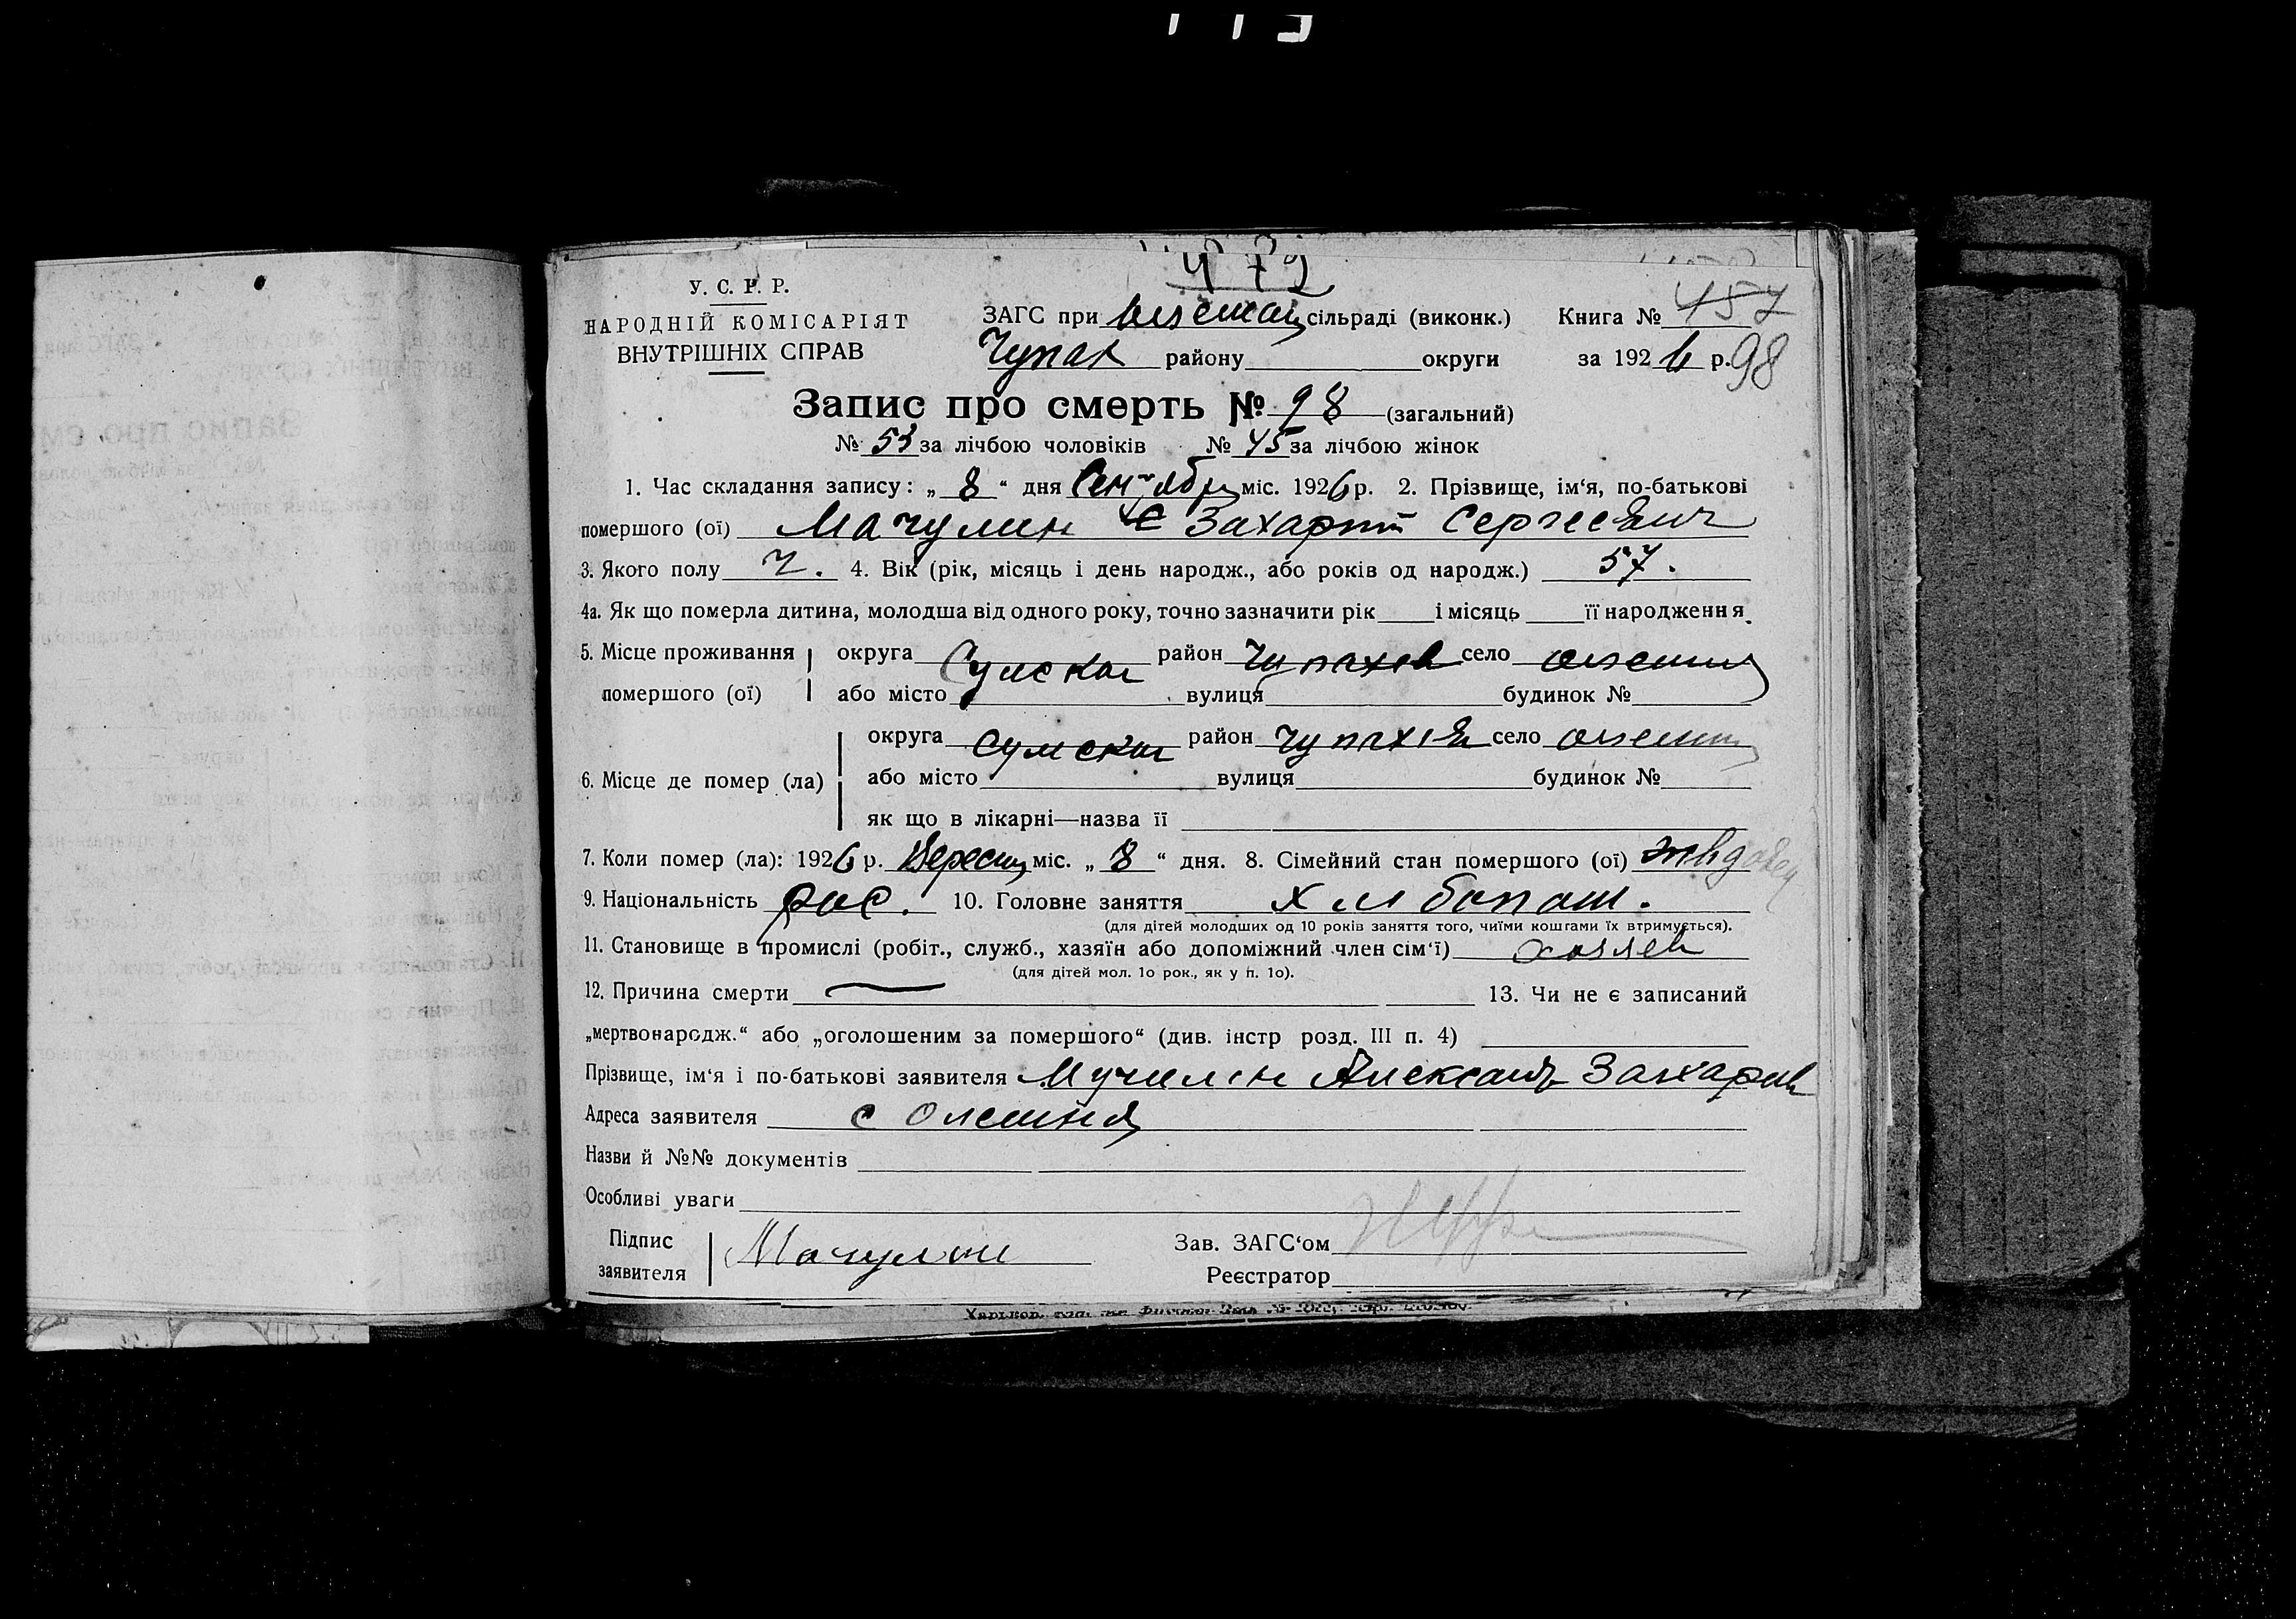 У. С. Р. Р.
НАРОДНІЙ КОМІСАРІЯТ
ВНУТРІШНІХ СПРАВ
ЗАГС при сільраді (виконк.) Книга № 457
Чупах району округи за 1926 р. 98
Запис про смерть № 98 (загальний)
№ 53 за лічбою чоловіків № 45 за лічбою жінок
1. Час складання запису: „ 8 “ дня Сентября міс. 1926 р. 2. Прізвище, ім‘я, по-батькові
помершого (ої) Мачулин Захарий Сергеевич
3. Якого полу Ч. 4. Вік (рік, місяць і день народж., або років од народж.) 57.
4а. Як що померла дитина, молодша від одного року, точно зазначити рік і місяць її народження.
5. Місце проживання округа Сумская район Чупахов село
помершого (ої) або місто вулиця будинок №
округа Сумская район село
6. Місце де помер (ла) або місто вулиця будинок №
як що в лікарні—назва її
7. Коли помер (ла): 1926 р. Вересня міс. „ 8 “ дня. 8. Сімейний стан помершого (ої)
9. Національність рос. 10. Головне заняття
(для дітей молодших од 10 років заняття того, чиїми коштами їх втримується).
11. Становище в промислі (робіт., служб., хазяїн або допоміжний член сім‘ї)
(для дітей мол. 10 рок., як у п. 10).
12. Причина смерти — 13. Чи не є записаний
„мертвонародж.“ або „оголошеним за помершого“ (див. інстр розд. III п. 4)
Прізвище, ім‘я і по-батькові заявителя Мучилин Александ Захаров
Адреса заявителя с Олешня
Назви й №№ документів
Особливі уваги
Підпис
заявителя Мачулин
Зав. ЗАГС‘ом
Реєстратор